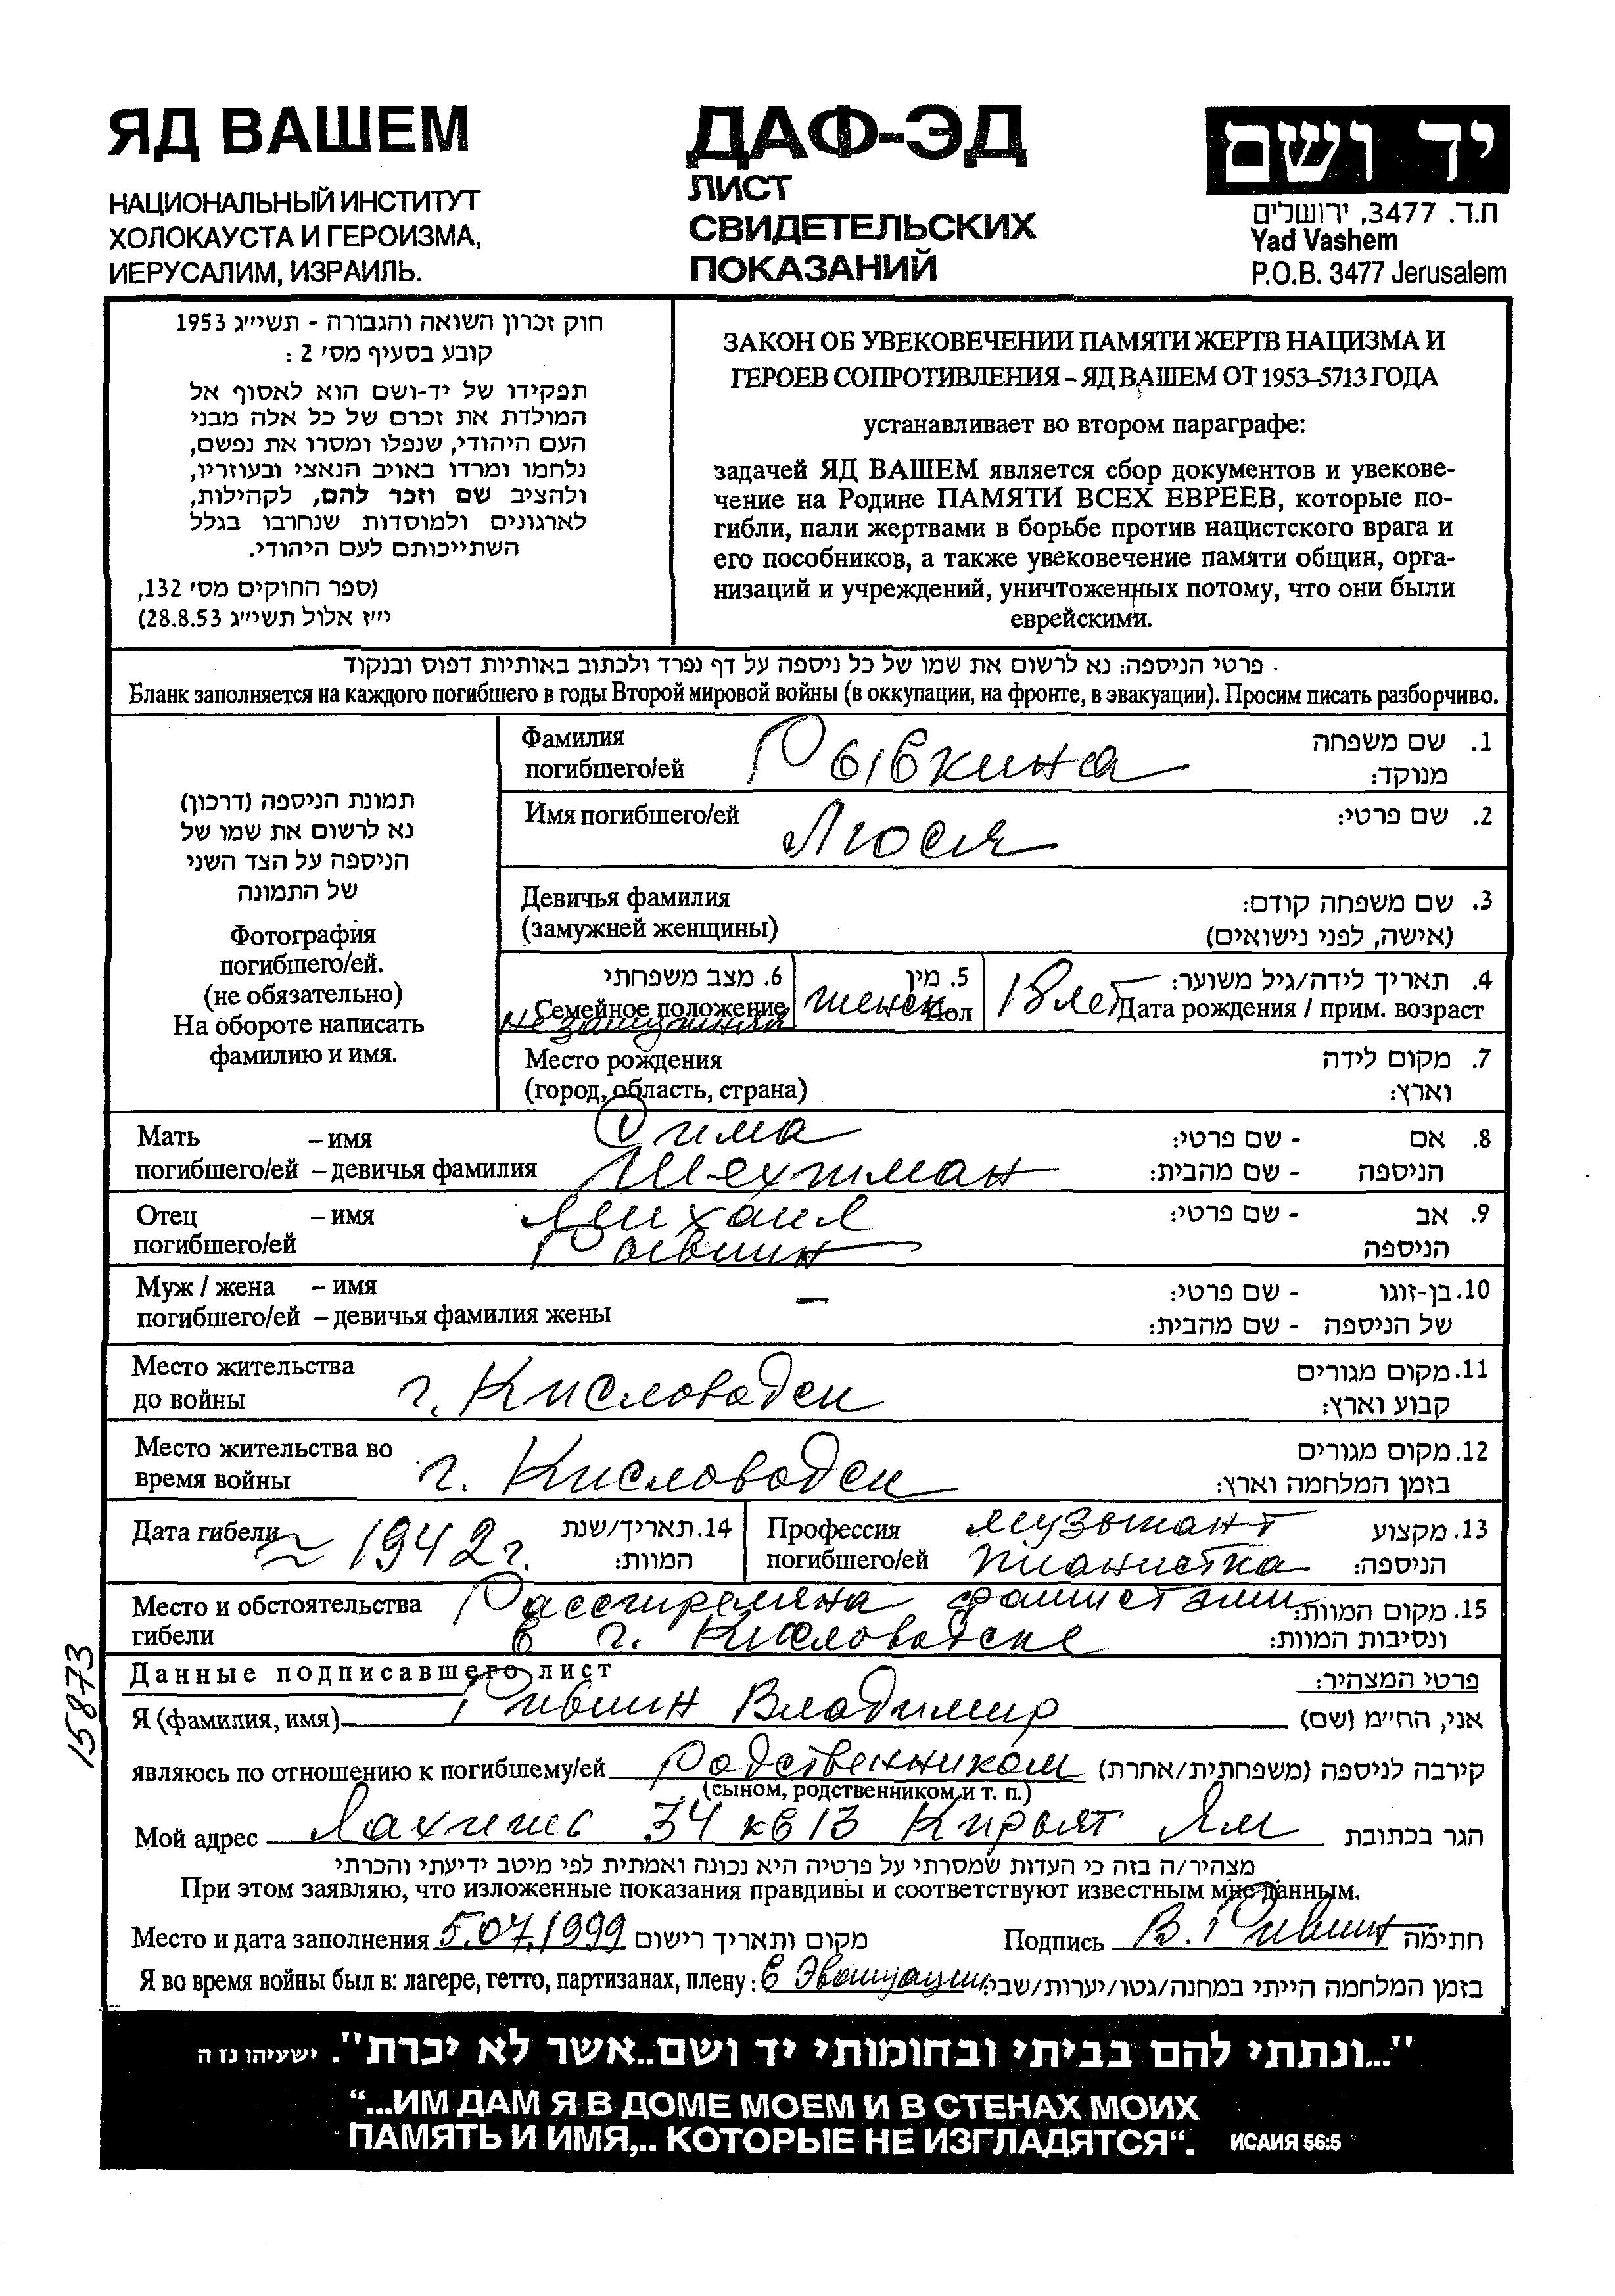 ЯД ВАШЕМ
НАЦИОНАЛЬНЫЙ ИНСТИТУТ
ХОЛОКАУСТА И ГЕРОИЗМА,
ИЕРУСАЛИМ, ИЗРАИЛЬ.
ДАФ-ЭД
ЛИСТ
СВИДЕТЕЛЬСКИХ
ПОКАЗАНИЙ
יד ושם
ת.ד. 3477, ירושלים
Yad Vashem
P.O.B. 3477 Jerusalem
חוק זכרון השואה והגבורה - תשי״ג 1953
קובע בסעיף מס׳ 2 :
תפקידו של יד-ושם הוא לאסוף אל
המולדת את זכרם של כל אלה מבני
העם היהודי, שנפלו ומסרו את נפשם,
נלחמו ומרדו באויב הנאצי ובעוזריו,
ולהציב שם וזכר להם, לקהילות,
לארגונים ולמוסדות שנחרבו בגלל
השתייכותם לעם היהודי.
(ספר החוקים מס׳ 132,
י״ז אלול תשי״ג 28.8.53)
ЗАКОН ОБ УВЕКОВЕЧЕНИИ ПАМЯТИ ЖЕРТВ НАЦИЗМА И
ГЕРОЕВ СОПРОТИВЛЕНИЯ – ЯД ВАШЕМ ОТ 1953–5713 ГОДА
устанавливает во втором параграфе:
задачей ЯД ВАШЕМ является сбор документов и увекове-
чение на Родине ПАМЯТИ ВСЕХ ЕВРЕЕВ, которые по-
гибли, пали жертвами в борьбе против нацистского врага и
его пособников, а также увековечение памяти общин, орга-
низаций и учреждений, уничтоженных потому, что они были
еврейскими.
פרטי הניספה: נא לרשום את שמו של כל ניספה על דף נפרד ולכתוב באותיות דפוס ובנקוד
Бланк заполняется на каждого погибшего в годы Второй мировой войны (в оккупации, на фронте, в эвакуации). Просим писать разборчиво.
תמונת הניספה (דרכון)
נא לרשום את שמו של
הניספה על הצד השני
של התמונה
Фотография
погибшего/ей.
(не обязательно)
На обороте написать
фамилию и имя.
Фамилия погибшего/ей Рывкина 1. שם משפחה מנוקד:
Имя погибшего/ей Люся 2. שם פרטי:
Девичья фамилия 3. שם משפחה קודם:
(замужней женщины) (אישה, לפני נישואים)
6. מצב משפחתי 5. מין 4. תאריך לידה/גיל משוער:
Семейное положение не замужняя Пол женск 18 лет Дата рождения / прим. возраст
Место рождения 7. מקום לידה
(город, область, страна) וארץ:
Мать – имя Сима 8. אם - שם פרטי:
погибшего/ей – девичья фамилия Шехтман הניספה - שם מהבית:
Отец – имя Михаил 9. אב - שם פרטי:
погибшего/ей Рывкин הניספה
Муж / жена – имя – 10. בן-זוגו - שם פרטי:
погибшего/ей – девичья фамилия жены של הניספה - שם מהבית:
Место жительства 11. מקום מגורים
до войны г. Кисловодск קבוע וארץ:
Место жительства во 12. מקום מגורים
время войны г. Кисловодск בזמן המלחמה וארץ:
Дата гибели ≈ 1942 г. 14. תאריך/שנת המוות:
Профессия погибшего/ей музыкант пианистка 13. מקצוע הניספה:
Место и обстоятельства Расстреляна фашистами 15. מקום המוות:
гибели в г. Кисловодске ונסיבות המוות:
15873
Данные подписавшего лист פרטי המצהיר:
Я (фамилия, имя) Ривкин Владимир אני, הח״מ (שם)
являюсь по отношению к погибшему/ей родственником קירבה לניספה (משפחתית/אחרת)
(сыном, родственником и т. п.)
Мой адрес Лахиш 34 кв 13 Кирьят Ям הגר בכתובת
מצהיר/ה בזה כי העדות שמסרתי על פרטיה היא נכונה ואמתית לפי מיטב ידיעתי והכרתי
При этом заявляю, что изложенные показания правдивы и соответствуют известным мне данным.
Место и дата заполнения 5.07.1999 מקום ותאריך רישום Подпись В. Ривкин חתימה
Я во время войны был в: лагере, гетто, партизанах, плену: в Эвакуации בזמן המלחמה הייתי במחנה/גטו/יערות/שבי:
"...ונתתי להם בביתי ובחומותי יד ושם..אשר לא יכרת". ישעיהו נז ה
“...ИМ ДАМ Я В ДОМЕ МОЕМ И В СТЕНАХ МОИХ
ПАМЯТЬ И ИМЯ,.. КОТОРЫЕ НЕ ИЗГЛАДЯТСЯ“. ИСАИЯ 56:5